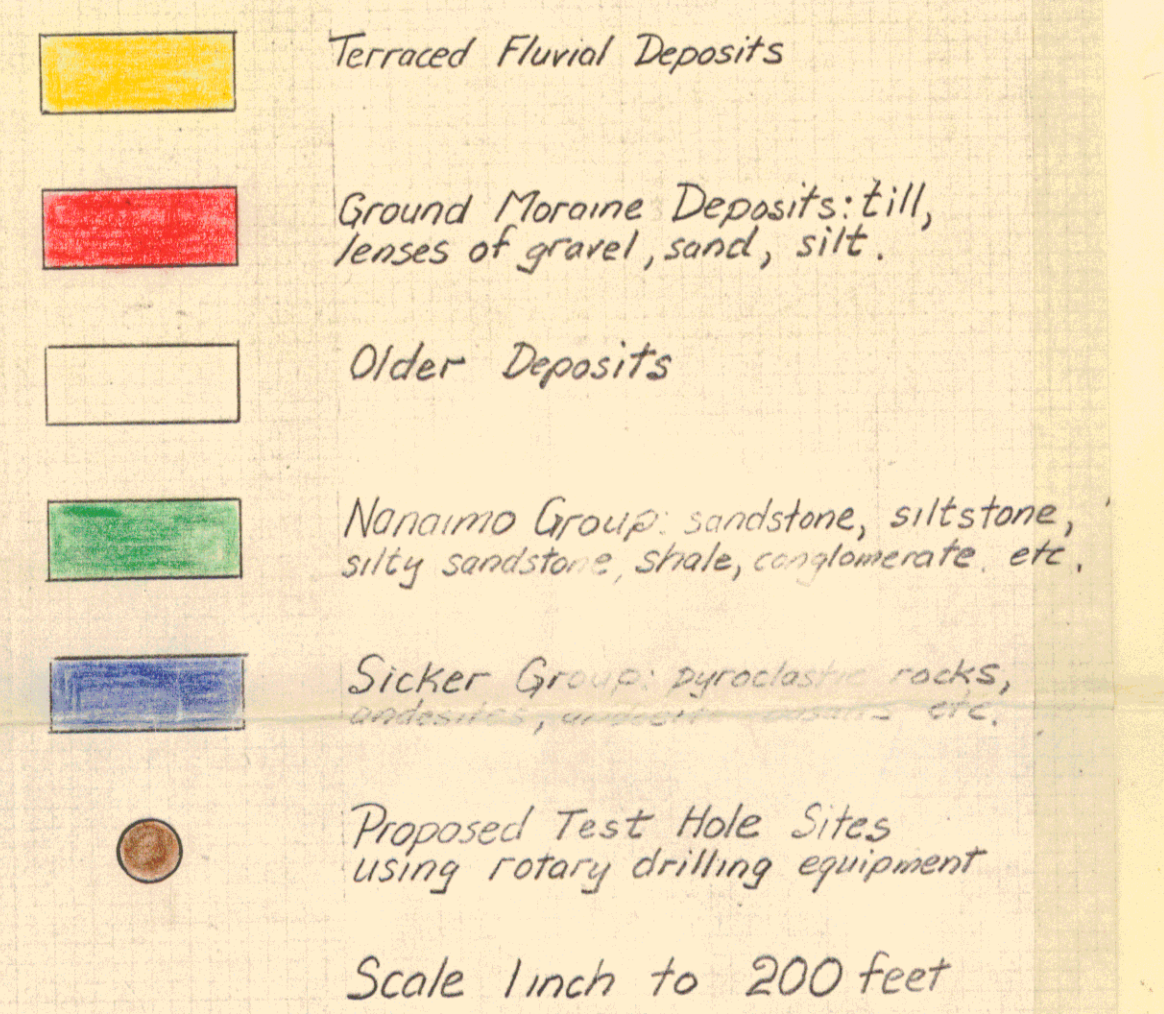 Terraced Fluvial Deposits
Ground Moraine Deposits: till,
lenses of gravel, sand, silt.
Older Deposits
Nanaimo Group: sandstone, siltstone,
silty sandstone, shale, conglomerate. etc.
Sicker Group: pyroclastic rocks,
andesites, etc.
Proposed Test Hole Sites
using rotary drilling equipment
Scale 1 inch to 200 feet